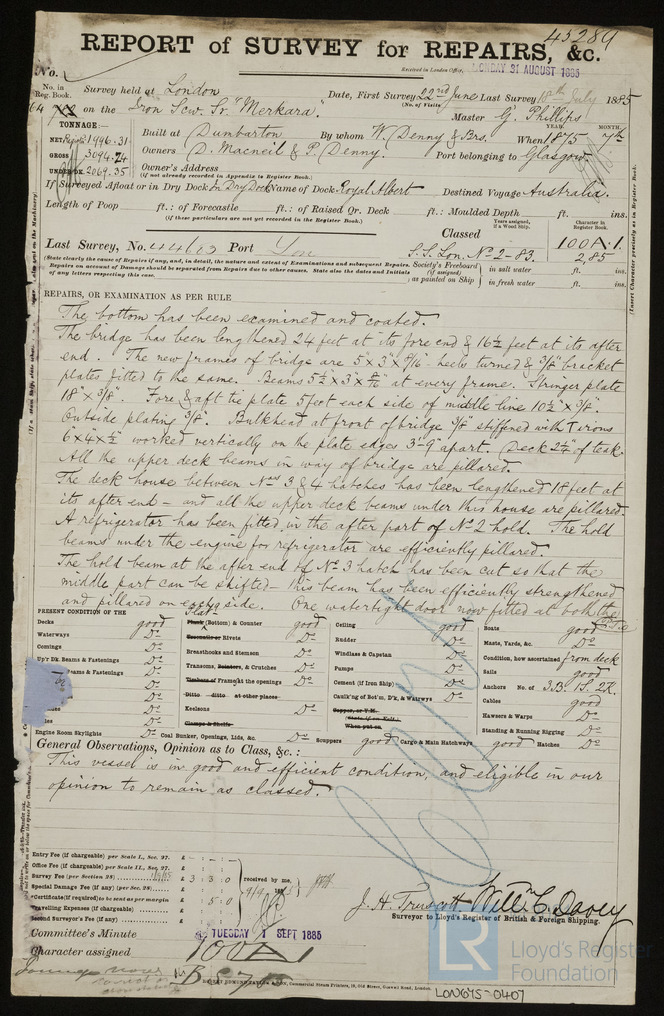 45289
REPORT of SURVEY for REPAIRS, &c.
Received in London Office, MONDAY 31 AUGUST 1885
No.
No. in Reg. Book.
Survey held at London Date, First Survey 22nd June Last Survey 18th July 1885
(No. of Visits)
64 on the Iron Scw. Sr. "Merkara". Master G. Phillips
TONNAGE:—
YEAR. MONTH.
NET Register 1996.31 Built at Dumbarton By whom W. Denny & Brs. When 1875 7th
GROSS 3094.74 Owners D. Macneil & P. Denny. Port belonging to Glasgow
UNDER DK. 2069.35 Owner's Address
(if not already recorded in Appendix to Register Book.)
If Surveyed Afloat or in Dry Dock In Dry Dock Name of Dock Royal Albert Destined Voyage Australia.
Length of Poop ft.: of Forecastle ft.: of Raised Qr. Deck ft.: Moulded Depth ft. ins.
(if these particulars are not yet recorded in the Register Book.)
Years assigned, if a Wood Ship.
Character in Register Book.
Classed 100A.1.
Last Survey, No. Port S.S. Lon. No 2-83. 2,85
(State clearly the cause of Repairs if any, and, in detail, the nature and extent of Examinations and subsequent Repairs. Repairs on account of Damage should be separated from Repairs due to other causes. State also the dates and Initials of any letters respecting this case.
Society's Freeboard (if assigned) as painted on Ship in salt water ft. ins.
in fresh water ft. ins.
(Insert Character precisely as in Register Book.
REPAIRS, OR EXAMINATION AS PER RULE
The bottom has been examined and coated.
The bridge has been lengthened 24 feet at its fore end & 16½ feet at its after
end. The new frames of bridge are 5 x 3 x 6/16 heels turned & 3/8" bracket
plates fitted to the same. Beams 5½ x 3 x at every frame. Stringer plate
18" x 3/8". Fore & aft tie plate 5 feet each side of middle line 10½ x 3/8".
Outside plating 3/8". Bulkhead at front of bridge 3/8" stiffened with T irons
6 x 4 x ½ worked vertically on the plate edges 3'-9" apart. Deck 2¾" of teak.
All the upper deck beams in way of bridge are pillared.
The deck house between Nos 3 & 4 hatches has been lengthened 18 feet at
its after end – and all the upper deck beams under this house are pillared.
A refrigerator has been fitted in the after part of No 2 hold. The hold
beams under the engine for refrigerator are efficiently pillared.
The hold beam at the after end of No 3 hatch has been cut so that the
middle part can be shifted – this beam has been efficiently strengthened
and pillared on each side. One watertight door now fitted at both the
PRESENT CONDITION OF THE
Decks good
Waterways Do
Comings Do
Up'r Dk Beams & Fastenings Do
Beams & Fastenings Do
Engine Room Skylights Do
Flat
Plank (Bottom) & Counter good
Treenails or Rivets Do
Breasthooks and Stemson Do
Transoms, Pointers, & Crutches Do
Timbers of Frame at the openings Do
Ditto ditto at other places Do
Keelsons Do
Clamps & Shelfs
Coal Bunker, Openings, Lids, &c. Do
Ceiling good
Rudder Do
Windlass & Capstan Do
Pumps Do
Cement (if Iron Ship) Do
Caulk'ng of Bot'm, D'k, & Watrways Do
Copper, or Y.M.
(State if on Felt.)
When put on
Scuppers good Cargo & Main Hatchways good Hatches Do
Boats good
Masts, Yards, &c. Do
Condition, how ascertained from deck
Sails good
Anchors No. of 3B. 1S. 2K.
Cables good
Hawsers & Warps Do
Standing & Running Rigging Do
General Observations, Opinion as to Class, &c.:
This vessel is in good and efficient condition, and eligible in our
opinion to remain as classed.
Entry Fee (if chargeable) per Scale I., Sec. 27. £
Office Fee (if chargeable) per Scale II., Sec. 27. £
Survey Fee (per Section 28) £ 3 . 3 . 0 received by me,
Special Damage Fee (if any) (per Sec. 28) £
*Certificate (if required) to be sent as per margin . 5 . 0
Travelling Expenses (if chargeable) £
Second Surveyor's Fee (if any) £
J. H. Truscott Willm C. Davey
Surveyor to Lloyd's Register of British & Foreign Shipping.
Committee's Minute TUESDAY 1 SEPT 1885
Character assigned 100A1
Commercial Steam Printers, 19, Old Street, Goswell Road, London.
LR
Lloyd's Register
Foundation
LON675-0407